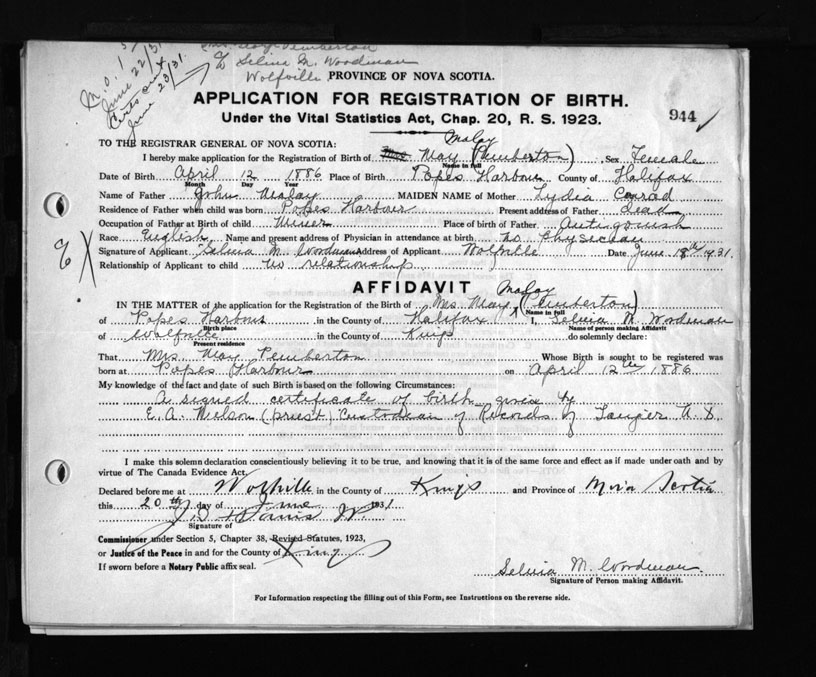 M.O. 1
June 22/31
Certs sent
June 23/31.
Pemberton
To Selina M. Woodman
Wolfville PROVINCE OF NOVA SCOTIA.
APPLICATION FOR REGISTRATION OF BIRTH.
Under the Vital Statistics Act, Chap. 20, R. S. 1923.
944
TO THE REGISTRAR GENERAL OF NOVA SCOTIA:
Malay
I hereby make application for the Registration of Birth of Mrs May (Pemberton) Sex Female
Name in full
Date of Birth April 12 1886 Place of Birth Popes Harbour County of Halifax
Month Day Year
Name of Father John Malay MAIDEN NAME of Mother Lydia Conrad
Residence of Father when child was born Popes Harbour Present address of Father dead
Occupation of Father at Birth of Child Miner Place of birth of Father Antigonish
Race English Name and present address of Physician in attendance at birth no Physician
Signature of Applicant Selina M. Woodman Address of Applicant Wolfville Date June 18th 1931.
Relationship of Applicant to child no relationship.
AFFIDAVIT
Malay
IN THE MATTER of the application for the Registration of the Birth of Mrs. May (Pemberton)
Name in full
of Popes Harbour in the County of Halifax I, Selina M. Woodman
Birth place Name of person making Affidavit
of Wolfville in the County of Kings do solemnly declare:
Present residence
That Mrs. May Pemberton Whose Birth is sought to be registered was
born at Popes Harbour on April 12th 1886
My knowledge of the fact and date of such Birth is based on the following Circumstances:
A signed certificate of birth given by
E. A. Wilson (priest) Custodian of Records of Tangier N. S.
I make this solemn declaration conscientiously believing it to be true, and knowing that it is of the same force and effect as if made under oath and by
virtue of The Canada Evidence Act.
Declared before me at Wolfville in the County of Kings and Province of Nova Scotia
this 20th day of June 1931
Davis
Signature of
Commissioner under Section 5, Chapter 38, Revised Statutes, 1923,
or Justice of the Peace in and for the County of Kings
If sworn before a Notary Public affix seal.
Selina M. Woodman.
Signature of Person making Affidavit.
For Information respecting the filling out of this Form, see Instructions on the reverse side.